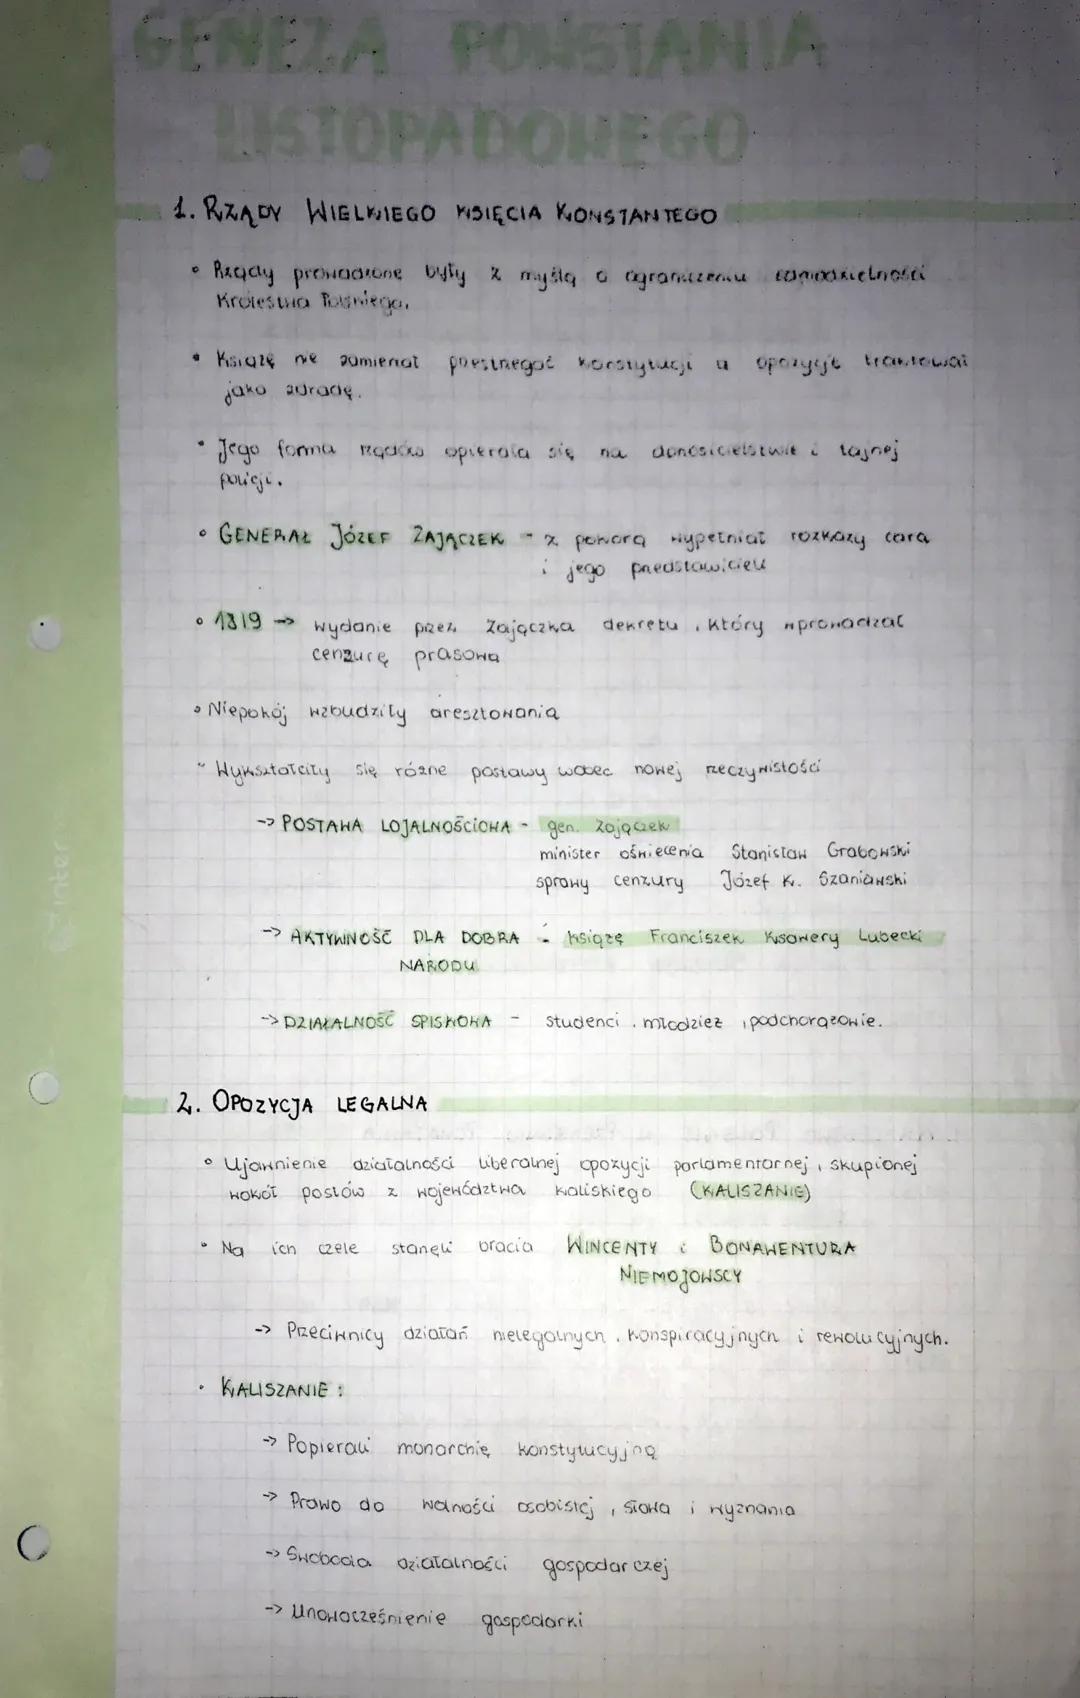 GENEZA POWSTANIA
LISTOPADOWEGO
1. RZĄDY WIELKIEGO KSIĘCIA KONSTANTEGO
• Rządy prowadzone były z myślą o ograniczeniu samodzielności
Królestwa Polskiego.
• Książę nie zamierzał przestrzegać konstytucji a opozycję traktował
jako zdradę.
• Jego forma rządów opierała się na donosicielstwie i tajnej
policji.
• GENERAŁ JÓZEF ZAJĄCZEK - z pokorą wypełniał rozkazy cara
i jego przedstawicieli
• 1819 -> wydanie przez Zajączka dekretu, który wprowadzał
cenzurę prasową
• Niepokój wzbudziły aresztowania
• Wykształciły się różne postawy wobec nowej rzeczywistości
-> POSTAWA LOJALNOŚCIOWA - gen. Zajączek
minister oświecenia Stanisław Grabowski
sprawy cenzury Józef K. Szaniawski
-> AKTYWNOŚĆ DLA DOBRA - książę Franciszek Ksawery Lubecki
NARODU
-> DZIAŁALNOŚĆ SPISKOWA - studenci, młodzież, podchorążowie.
2. OPOZYCJA LEGALNA
• Ujawnienie działalności liberalnej opozycji parlamentarnej, skupionej
wokół posłów z województwa kaliskiego (KALISZANIE)
• Na ich czele stanęli bracia WINCENTY i BONAWENTURA
NIEMOJOWSCY
-> Przeciwnicy działań nielegalnych, konspiracyjnych i rewolucyjnych.
• KALISZANIE:
-> Popierali monarchię konstytucyjną
-> Prawo do wolności osobistej, słowa i wyznania
-> Swoboda działalności gospodarczej
-> Unowocześnienie gospodarki